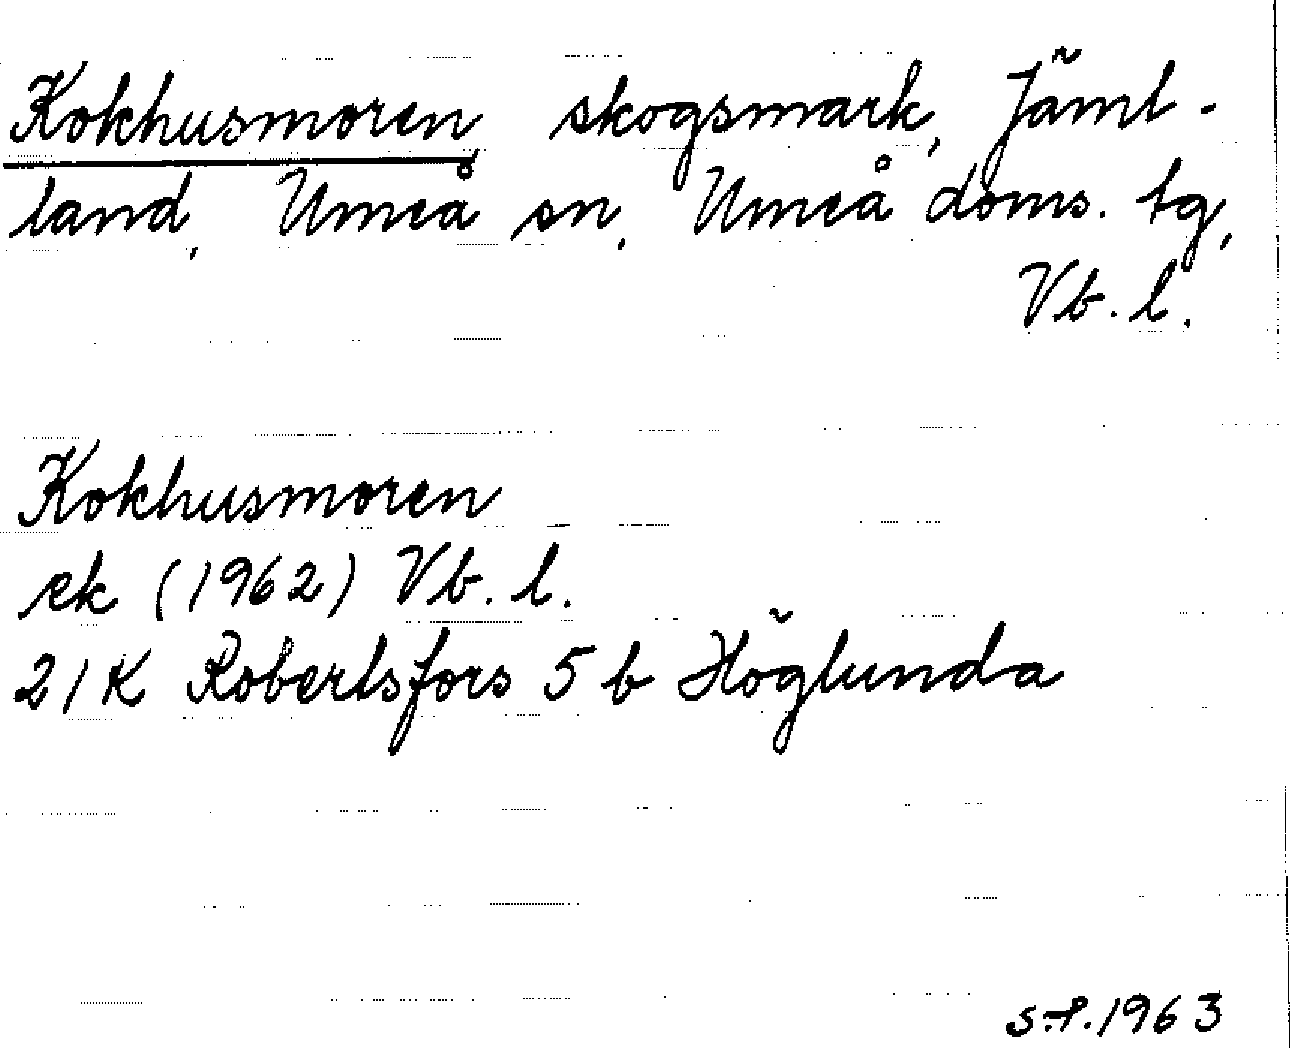 Kokhusmoren, skogsmark, Jämt-
land, Umeå sn, Umeå doms. tg,
Vb. l.
Kokhusmoren
ek (1962) Vb. l.
21K Robertsfors 5 b Höglunda
1963